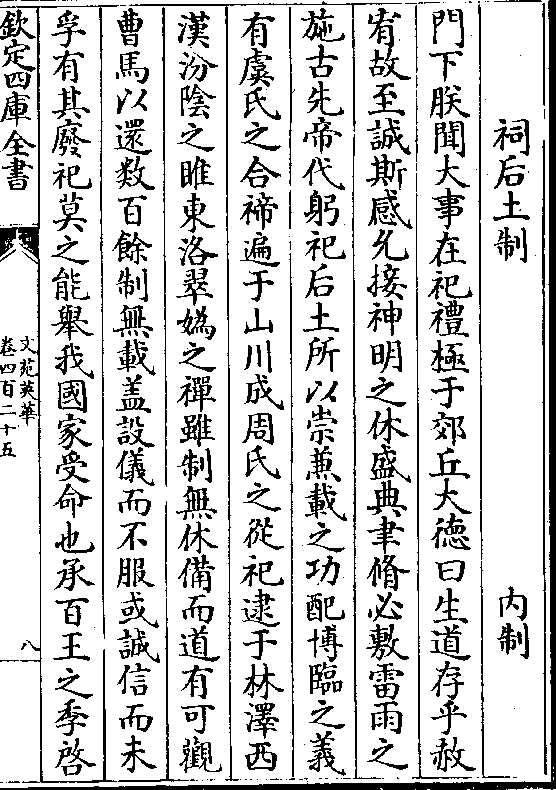 祠后土制　　　　　　　　内制
門下朕聞大事在祀禮極于郊丘大德曰生道存乎赦
宥故至誠斯感允接神明之休盛典聿脩必敷雷雨之
施古先帝代躬祀后土所以崇兼載之功配博臨之義
有虞氏之合禘遍于山川成周氏之從祀逮于林澤西
漢汾陰之睢東洛翠媯之禪雖制無休備而道有可觀
曹馬以還数百餘制無載盖設儀而不服或誠信而未
孚有其廢祀莫之能舉我國家受命也承百王之季啓
欽定四庫全書
文苑英華
卷四百二十五
八